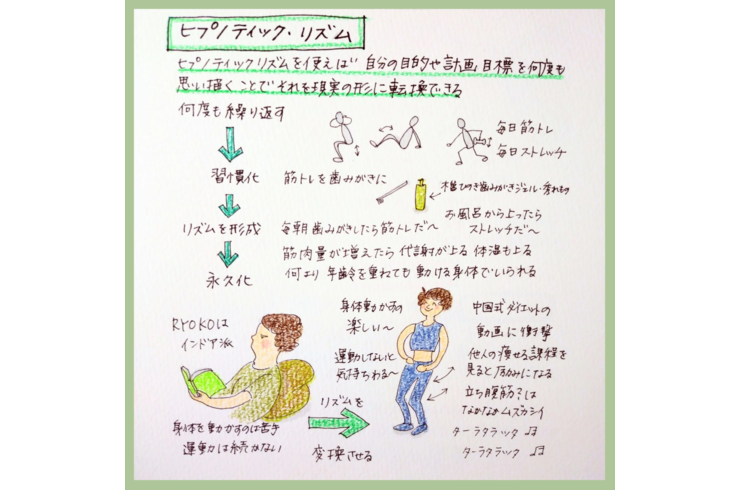 ヒプノティック・リズム
ヒプノティックリズムを使えば 自分の目的や計画 目標を何度も
思い描くことでそれを現実の形に転換できる
何度も繰り返す
毎日筋トレ
毎日ストレッチ
習慣化
筋トレを歯みがきに
木曽ひのき歯みがきジェル・秀れもの
リズムを形成
毎朝歯みがきしたら筋トレだ〜
お風呂から上ったら
ストレッチだ〜
筋肉量が増えたら 代謝が上る 体温も上る
永久化
何より 年齢を重ねても動ける身体でいられる
RYOKOは
インドア派
身体を動かすのは苦手
運動は続かない
リズムを
変換させる
身体動かすの
楽しい〜
運動しないと
気持ちわる〜
中国式ダイエットの
動画に衝撃
他人の痩せる課程を
見ると励みになる
立ち腹筋?は
なかなかムズカシイ
ターラタラッタ ♫
ターラタラック ♫